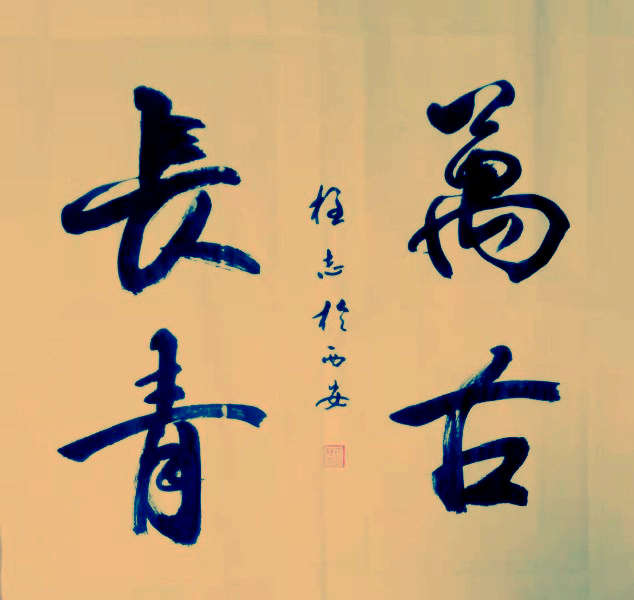 萬古
長青
志於西安